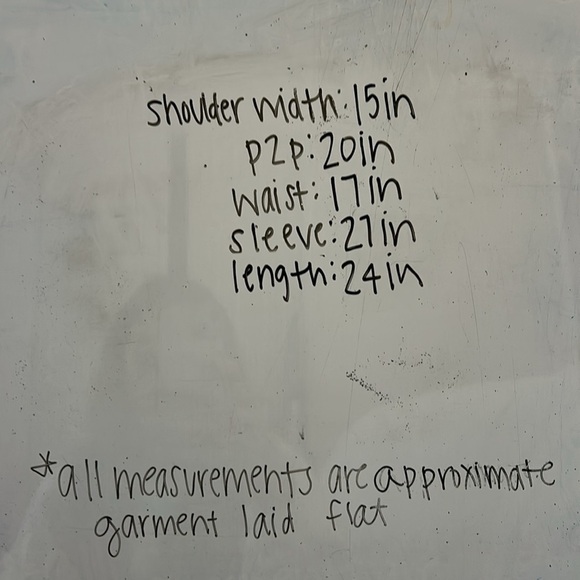 shoulder width: 15in
p2p: 20in
waist: 17in
sleeve: 27in
length: 24in
*all measurements are approximate
garment laid flat